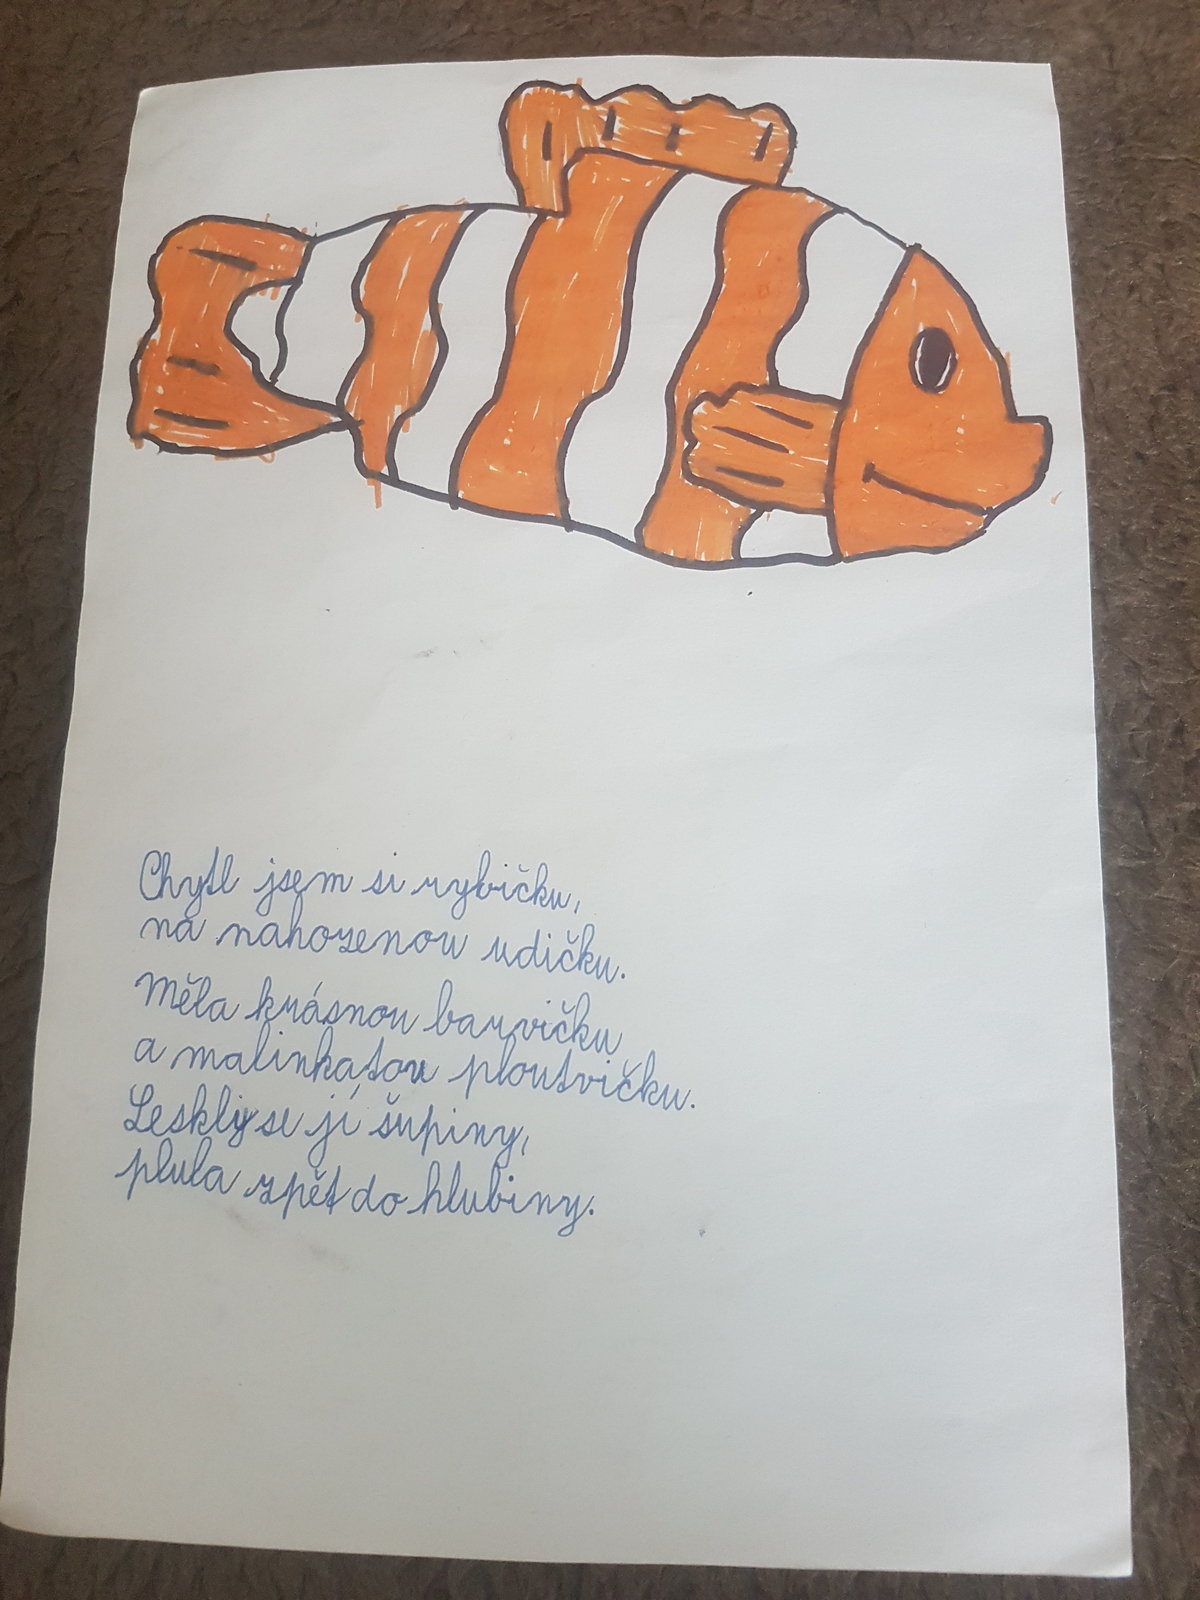 Chytl jsem si rybičku,
na nahozenou udičku.
Měla krásnou barvičku
a malinkatou ploutvičku.
Leskly se jí šupiny,
plula zpět do hlubiny.